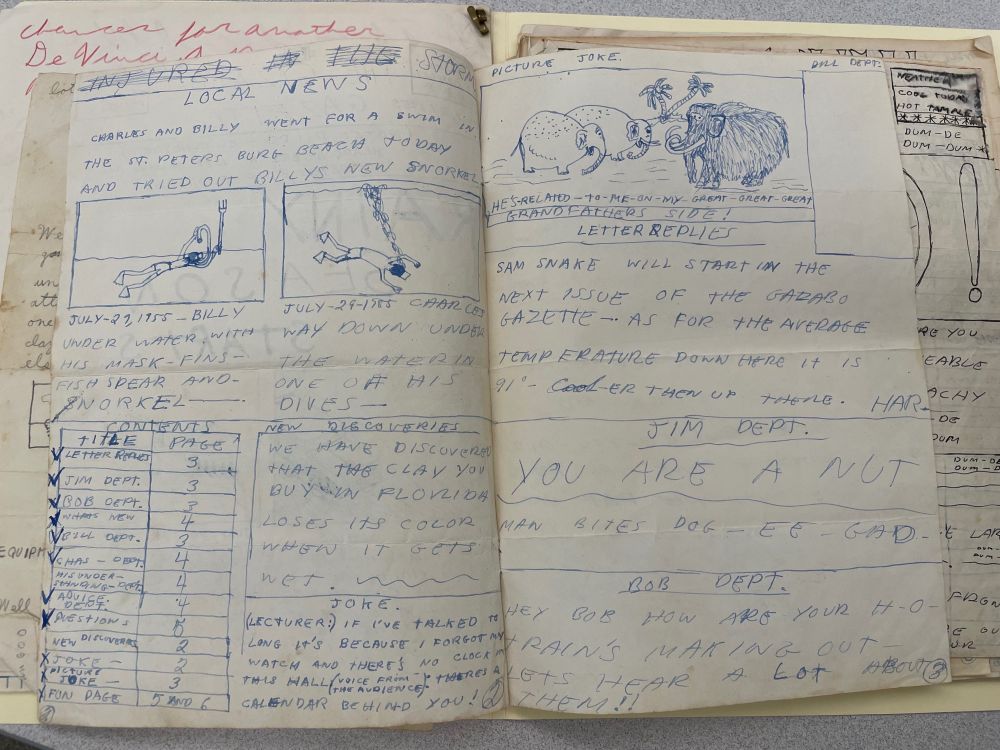 chances for another
De Vinci
INJURED IN THE STORM
LOCAL NEWS
CHARLES AND BILLY WENT FOR A SWIM IN
THE ST. PETERS BURG BEACH TODAY
AND TRIED OUT BILLYS NEW SNORKEL
JULY-29, 1955 - BILLY
UNDER WATER WITH
HIS MASK-FINS-
FISH SPEAR AND-
SNORKEL
JULY-29-1955 CHARLES
WAY DOWN UNDER
THE WATER IN
ONE OF HIS
DIVES-
CONTENTS
TITLE PAGE
LETTER REPLIES 3
JIM DEPT. 3
BOB DEPT. 3
WHATS NEW 4
BILL DEPT. 3
CHAS-DEPT. 4
MISUNDER-
STANDING-DEPT. 4
ADVICE
DEPT. 4
QUESTIONS 5
NEW DISCOVERIES 2
JOKE- 2
PICTURE
JOKE- 3
FUN PAGE 5 AND 6
NEW DISCOVERIES
WE HAVE DISCOVERED
THAT THE CLAY YOU
BUY IN FLORIDA
LOSES ITS COLOR
WHEN IT GETS
WET.
JOKE.
(LECTURER:) IF I'VE TALKED TO
LONG IT'S BECAUSE I FORGOT MY
WATCH AND THERE'S NO CLOCK IN
THIS HALL (VOICE FROM THE AUDIENCE) THERE'S A
CALENDAR BEHIND YOU!
2
PICTURE JOKE.
HE'S-RELATED-TO-ME-ON-MY-GREAT-GREAT-GREAT
GRANDFATHERS SIDE!
LETTER REPLIES
SAM SNAKE WILL START IN THE
NEXT ISSUE OF THE GAZABO
GAZETTE- AS FOR THE AVERAGE
TEMPERATURE DOWN HERE IT IS
91°- Cool-ER THEN UP THERE. HAR-
JIM DEPT.
YOU ARE A NUT
MAN BITES DOG - EE - GAD-
BOB DEPT.
HEY BOB HOW ARE YOUR H-O-
TRAINS MAKING OUT-
LETS HEAR A LOT ABOUT
THEM!!
3
BILL DEPT.
WEATHER
COOL
HOT TAMALE
DUM-DE
DUM-DUM
RE YOU
EABLE
ACHY
DE
DUM
DUM-DE
DUM-D
E LAR
EQUIPM
Well